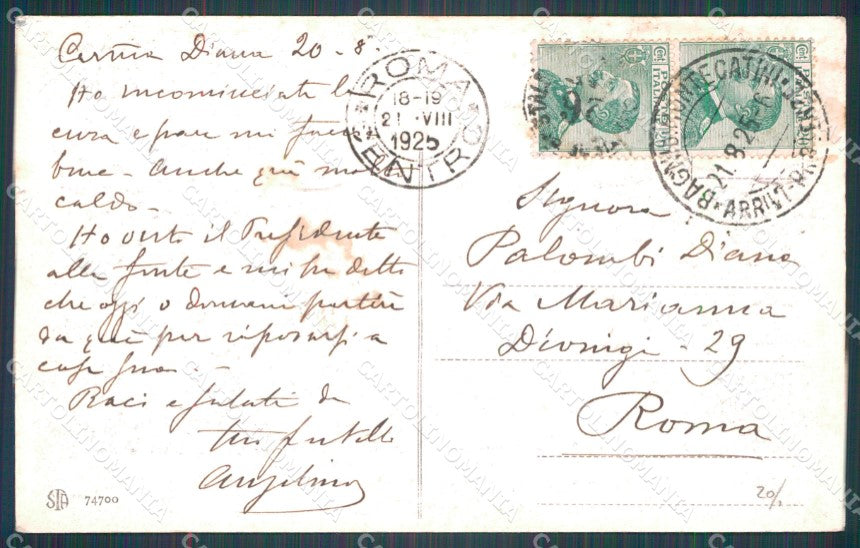 Carma Diana 20-8
Ho incominciato la
cura e pare mi faccia
bene - Anche qui molto
caldo -
Ho visto il Presidente
alla fonte e mi ha detto
che oggi o domani partirà
da qui per riposarsi a
casa sua -
Baci e saluti da
tuo fratello
Angelino
STA 74700
ROMA CENTRO
18-19
21 · VIII
1925
BAGNI DI MONTECATINI
21.8.25
ARRIVI
Signora
Palombi Diana
Via Marianna
Dionigi - 29
Roma
20/